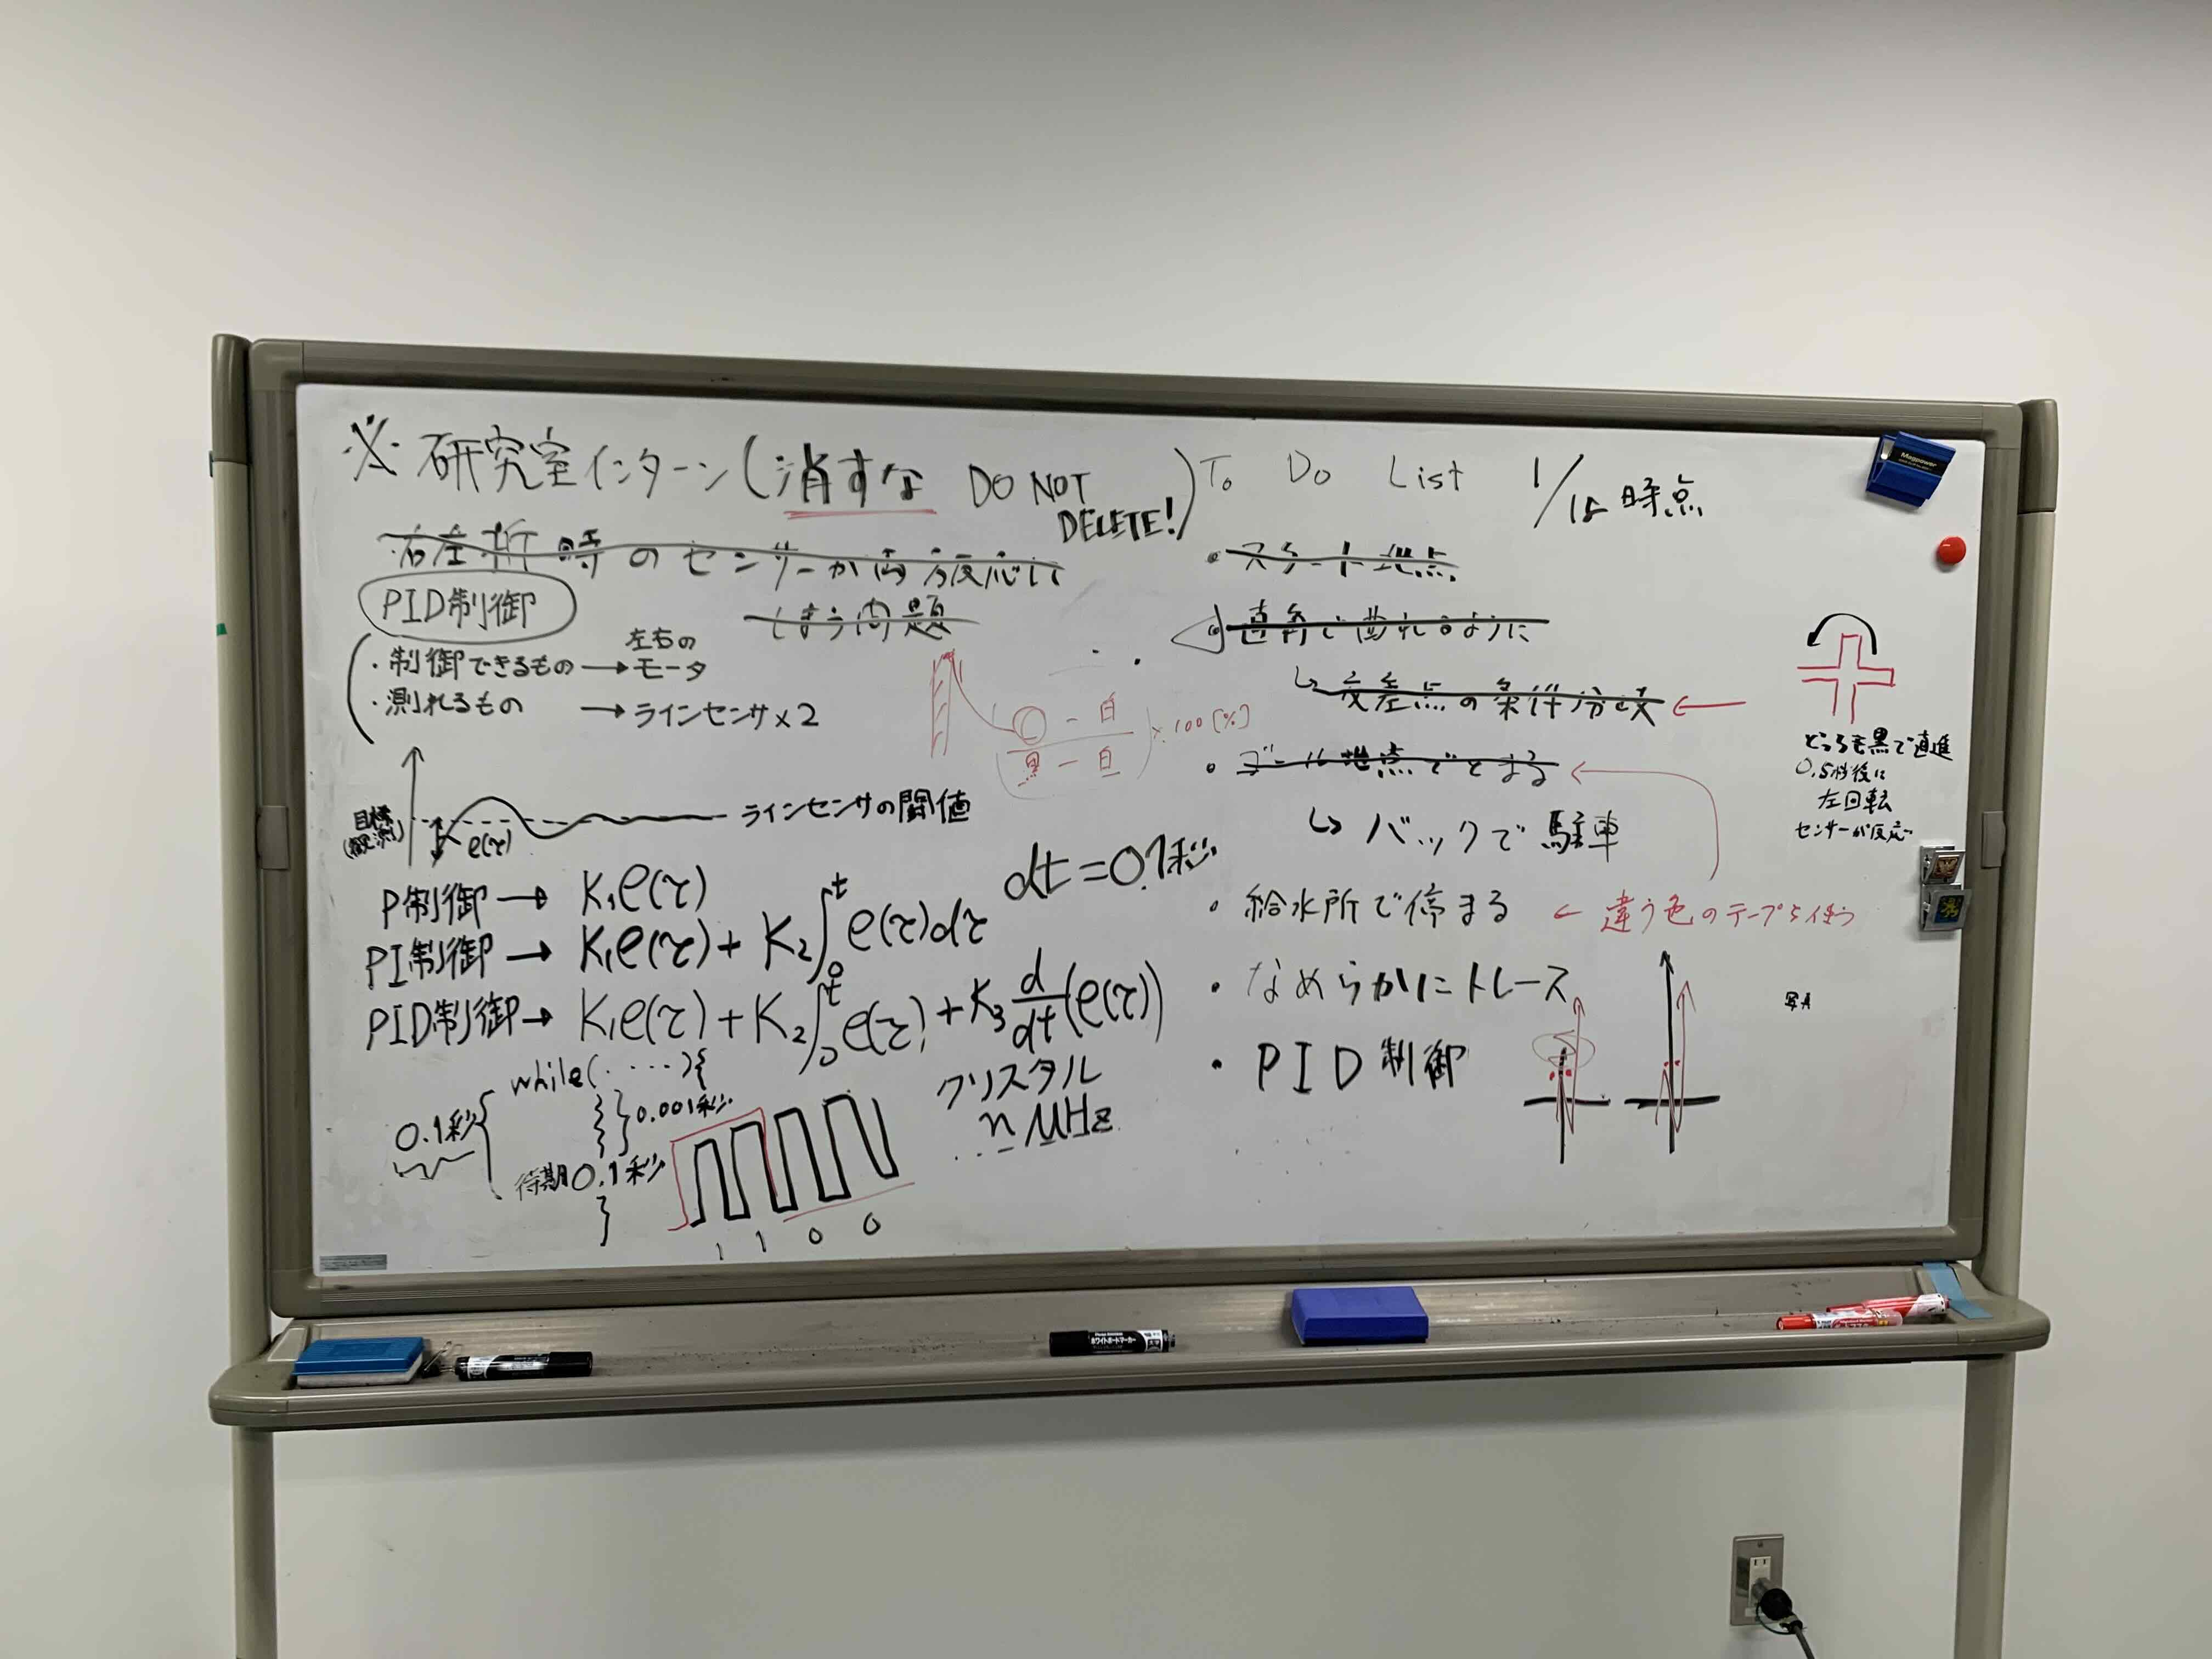 ※研究室インターン(消すな DO NOT DELETE!)
右左折時のセンサーが両方反応して
しまう問題
PID制御
・制御できるもの → 左右のモータ
・測れるもの → ラインセンサ×2
目標
e(τ)
ラインセンサの閾値
P制御 → K₁e(τ)
PI制御 → K₁e(τ) + K₂∫₀ᵗ e(τ)dτ
PID制御 → K₁e(τ) + K₂∫₀ᵗ e(τ) + K₃ d/dt (e(τ))
dt = 0.1秒
while(.....){
0.001秒
0.1秒
待期0.1秒
}
1 1 0 0
クリスタル
n MHz
(○-白 / 黒-白) × 100 [%]
To Do List 1/18時点
・スタート地点
・直角で曲れるように
↳ 交差点の条件分岐 ←
・ゴール地点でとまる ←
↳ バックで駐車
・給水所で停まる ← 違う色のテープを使う
・なめらかにトレース
・PID制御
どっちも黒で直進
0.5秒後に
左回転
センサーが反応
Magpower
ホワイトボードマーカー